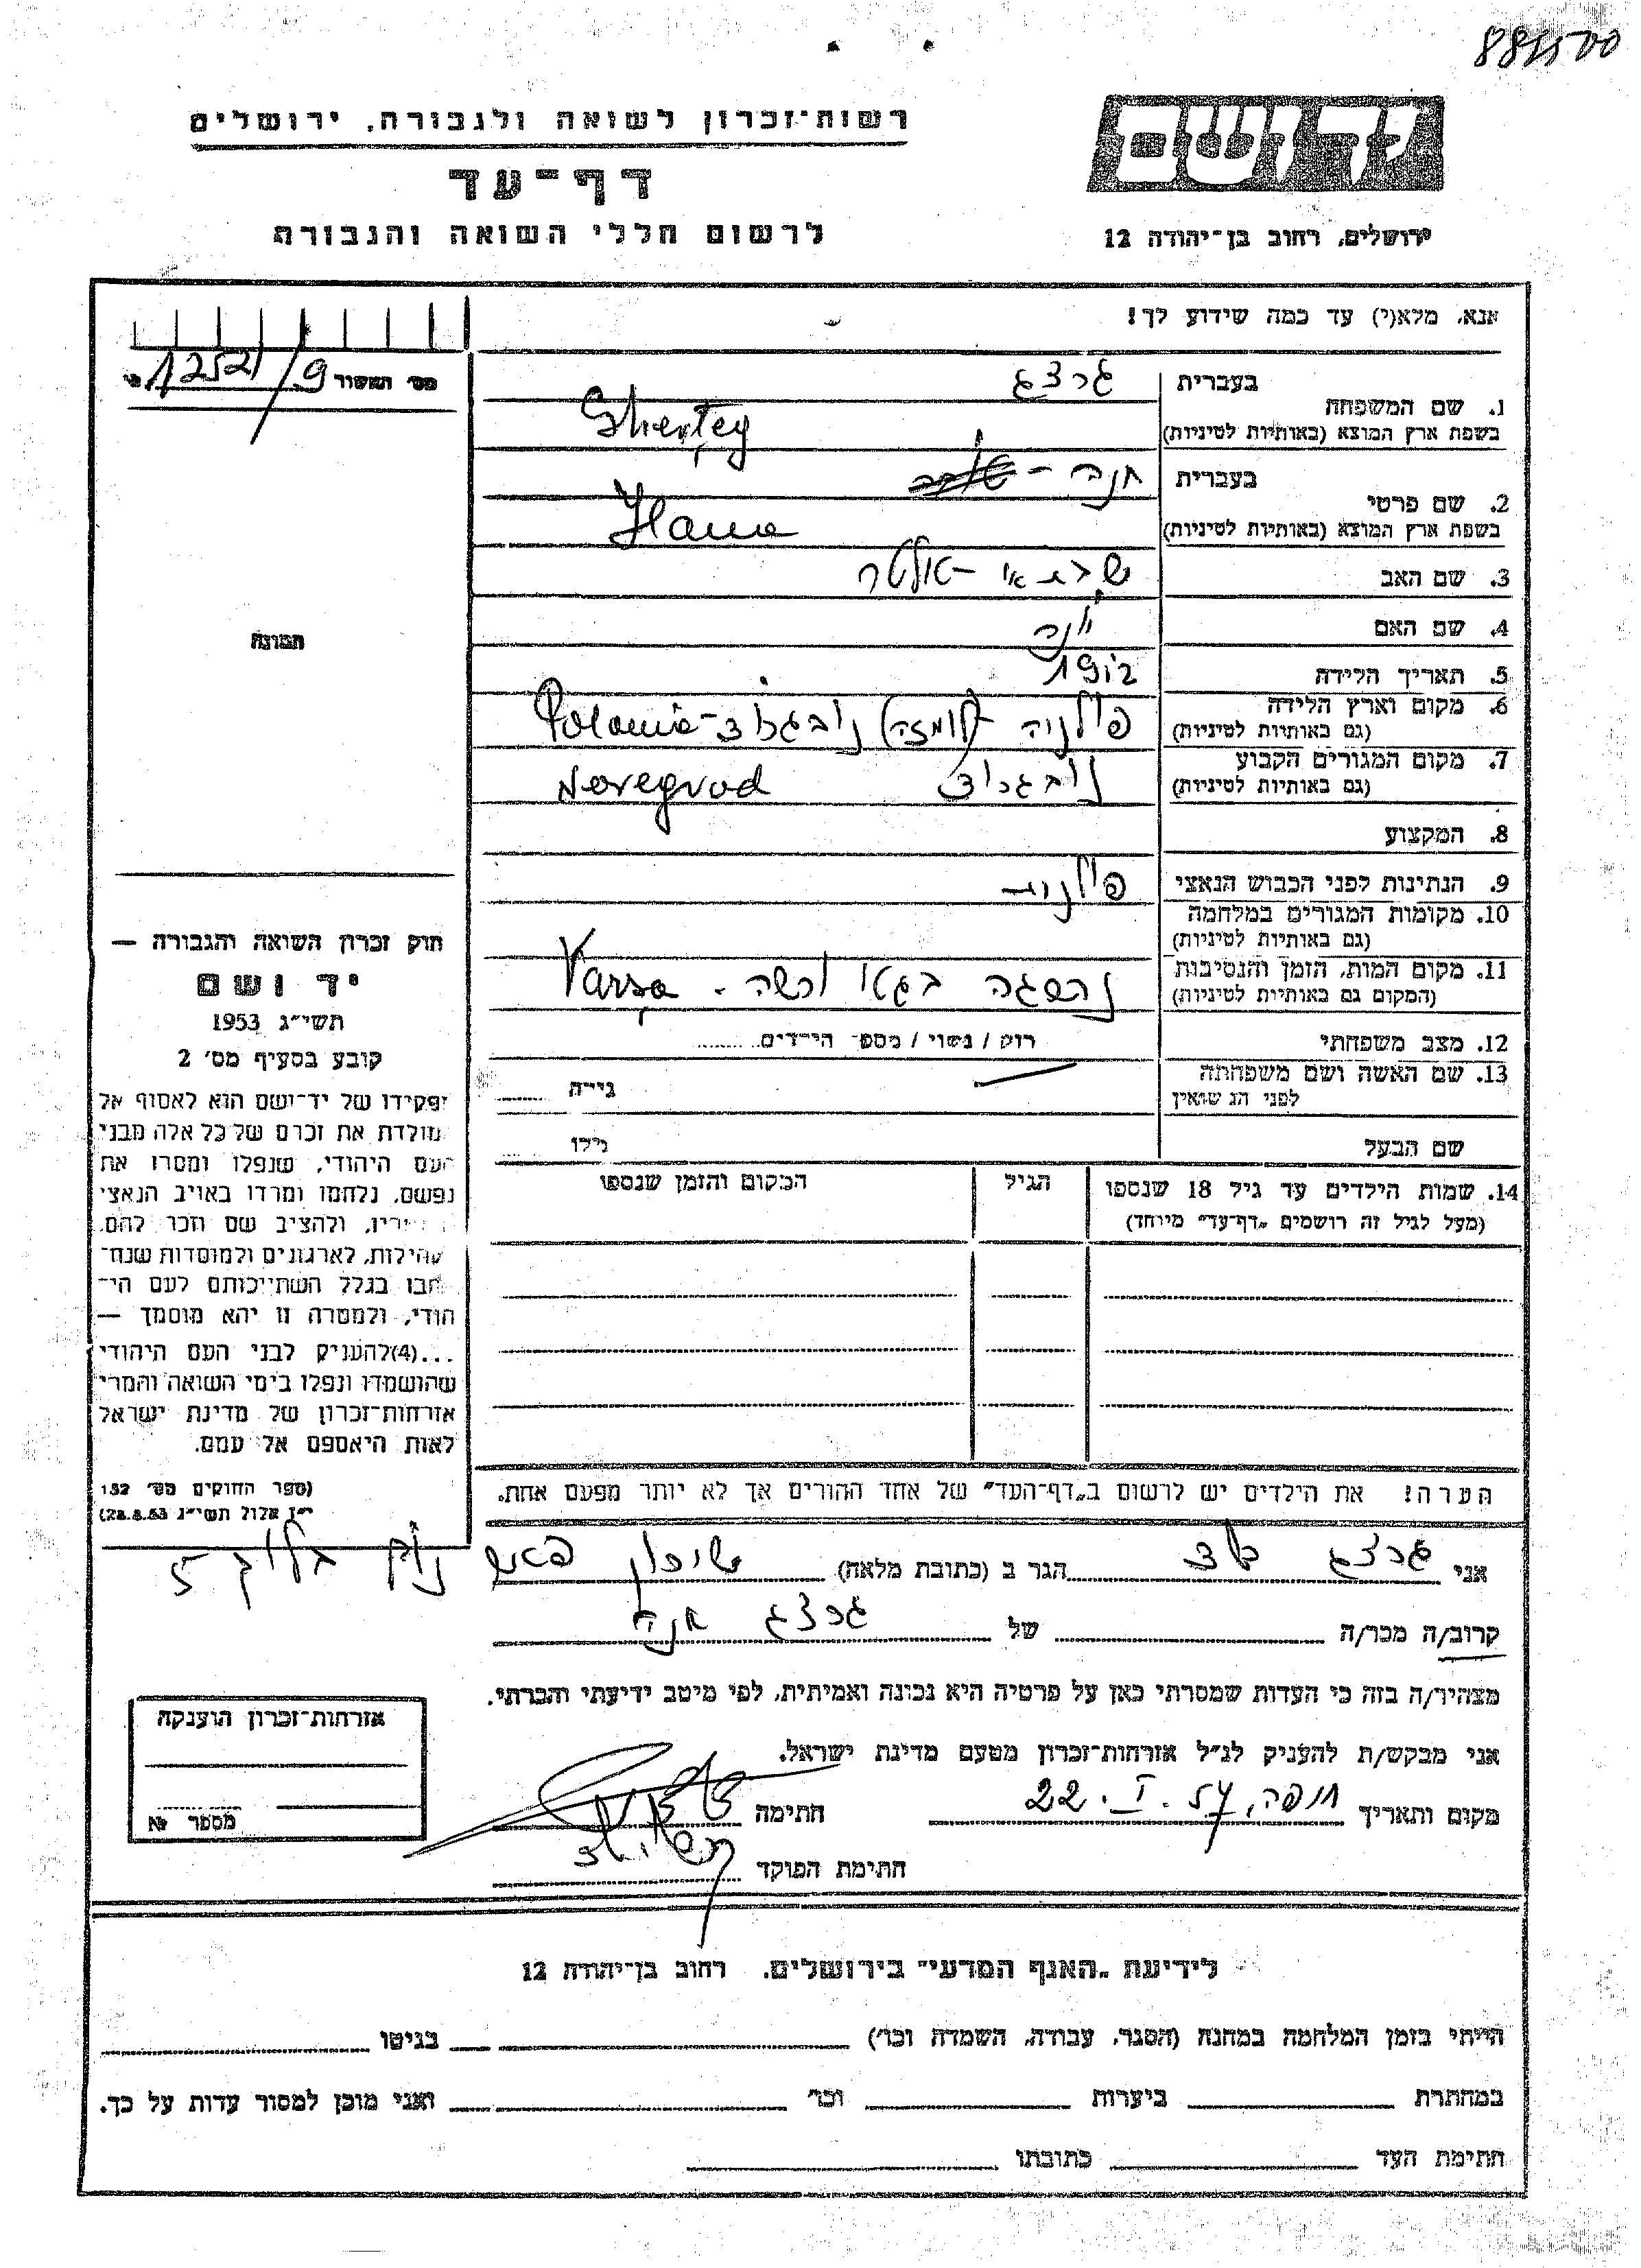 רשות־זכרון לשואה ולגבורה, ירושלים
דף־עד
לרשום חללי השואה והגבורה
ירושלים, רחוב בן־יהודה 12
אנא, מלא(י) עד כמה שידוע לך!
מס׳ המשור 1252/9
1. שם המשפחה
בעברית
בשפת ארץ המוצא (באותיות לטיניות)
2. שם פרטי
בעברית חנה
בשפת ארץ המוצא (באותיות לטיניות)
3. שם האב
4. שם האם
5. תאריך הלידה
6. מקום וארץ הלידה
(גם באותיות לטיניות) פולניה (לומזה) נובגרוד - Polania
7. מקום המגורים הקבוע
(גם באותיות לטיניות) נובגרוד Novegrod
8. המקצוע
9. הנתינות לפני הכבוש הנאצי פולנית
10. מקומות המגורים במלחמה
(גם באותיות לטיניות)
11. מקום המות, הזמן והנסיבות
(המקום גם באותיות לטיניות) נהרגה בגטו ורשה. Varsa
12. מצב משפחתי רוק / נשוי / מספר הילדים
13. שם האשה ושם משפחתה
לפני הנשואין גילה
שם הבעל גילו
14. שמות הילדים עד גיל 18 שנספו
(מעל לגיל זה רושמים „דף־עד״ מיוחד)
הגיל
המקום והזמן שנספו
תמונה
חוק זכרון השואה והגבורה —
יד ושם
תשי״ג 1953
קובע בסעיף מס׳ 2
תפקידו של יד־ושם הוא לאסוף אל
מולדת את זכרם של כל אלה מבני
העם היהודי, שנפלו ומסרו את
נפשם, נלחמו ומרדו באויב הנאצי
ולהציב שם וזכר להם,
לקהילות, לארגונים ולמוסדות שנח־
רבו בגלל השתייכותם לעם הי־
הודי, ולמטרה זו יהא מוסמך —
...(4)להעניק לבני העם היהודי
שהושמדו ונפלו בימי השואה והמרי
אזרחות־זכרון של מדינת ישראל
לאות היאספם אל עמם.
(ספר החוקים מס׳ 132
י״ז אלול תשי״ג 28.8.53)
הערה! את הילדים יש לרשום ב„דף־העד״ של אחד ההורים אך לא יותר מפעם אחת.
אני הגר ב (כתובת מלאה) שיכון
קרוב/ה מכר/ה של
מצהיר/ה בזה כי העדות שמסרתי כאן על פרטיה היא נכונה ואמיתית, לפי מיטב ידיעתי והכרתי.
אני מבקש/ת להעניק לנ״ל אזרחות־זכרון מטעם מדינת ישראל.
מקום ותאריך חיפה, 22.I.57 חתימה
חתימת הפוקד
אזרחות־זכרון הוענקה
מספר №
לידיעת „האגף המדעי״ בירושלים, רחוב בן־יהודה 12
הייתי בזמן המלחמה במחנה (הסגר, עבודה, השמדה וכו׳) בגיטו
במחתרת ביערות וכו׳ ואני מוכן למסור עדות על כך.
חתימת העד כתובתו